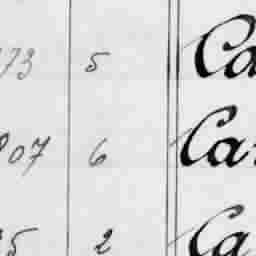 73 5 Ca
807 6 Ca
5 2 Ca